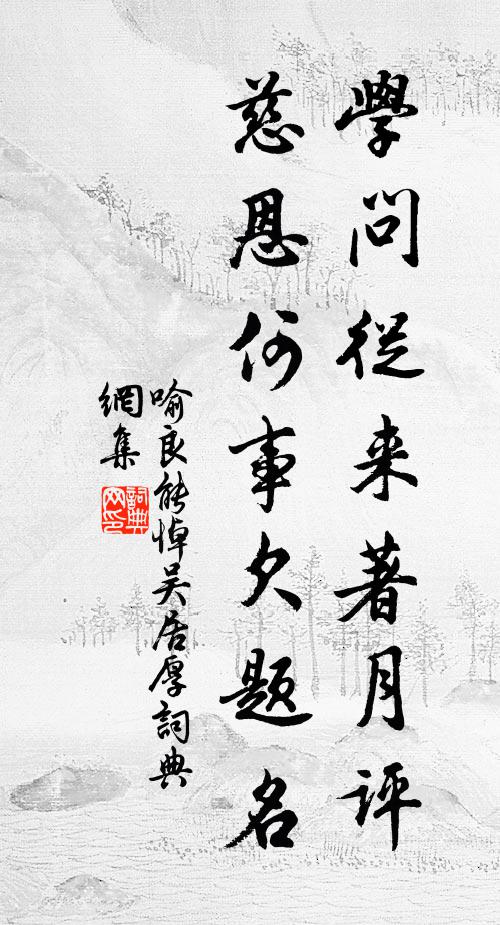 學問從来著月評
慈恩何事欠題名
喻良能悼吴居厚詞典
網集
詞典
网印